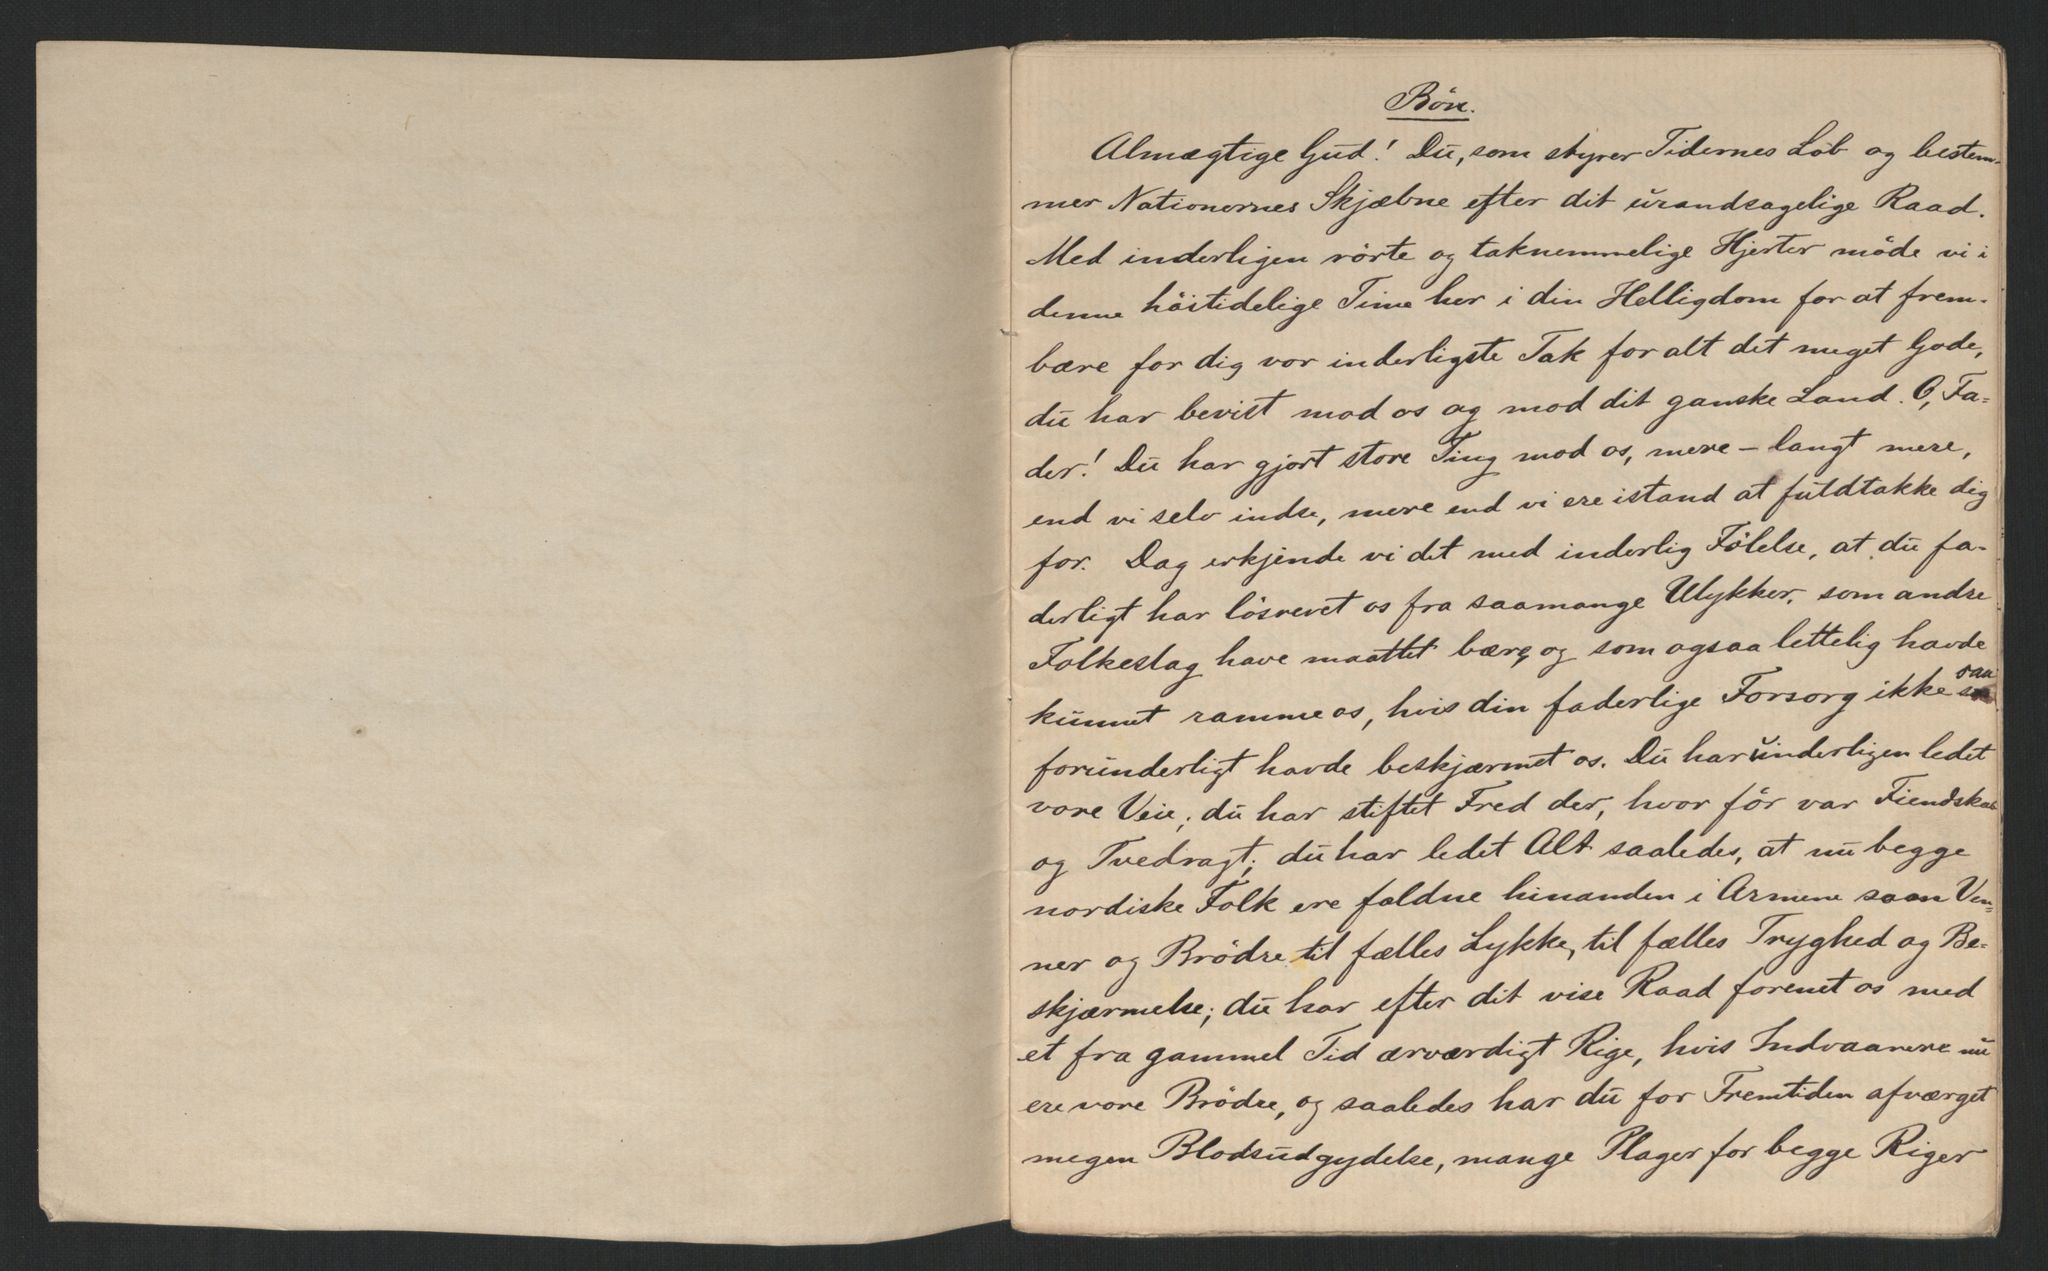 Bön.
Almægtige Gud! Du, som styrer Tidernes Löb og bestem-
mer Nationernes Skjæbne efter dit urandsagelige Raad.
Med inderligen rörte og taknemmelige Hjerter möde vi i
denne höitidelige Time her i din Helligdom for at frem-
bære for dig vor inderligste Tak for alt det meget Gode,
du har bevist mod os og mod dit ganske Land. O, Fa-
der! Du har gjort store Ting mod os, mere – langt mere,
end vi selv indse, mere end vi ere istand at fuldtakke dig
for. Dog erkjende vi det med inderlig Fölelse, at du fa-
derligt har lösrevet os fra saamange Ulykker, som andre
Folkeslag have maattet bære, og som ogsaa lettelig havde
kunnet ramme os, hvis din faderlige Forsorg ikke saa
forunderligt havde beskjærmet os. Du har underligen ledet
vore Veie; du har stiftet Fred der, hvor för var Fiendskab
og Tvedragt; du har ledet Alt saaledes, at nu begge
nordiske Folk ere faldne hinanden i Armene som Ven-
ner og Brödre til fælles Lykke, til fælles Tryghed og Be-
skjærmelse; du har efter dit vise Raad forenet os med
et fra gammel Tid ærværdigt Rige, hvis Indvaanere nu
ere vore Brödre, og saaledes har du for Fremtiden afværget
megen Blodsudgydelse, mange Plager for begge Riger